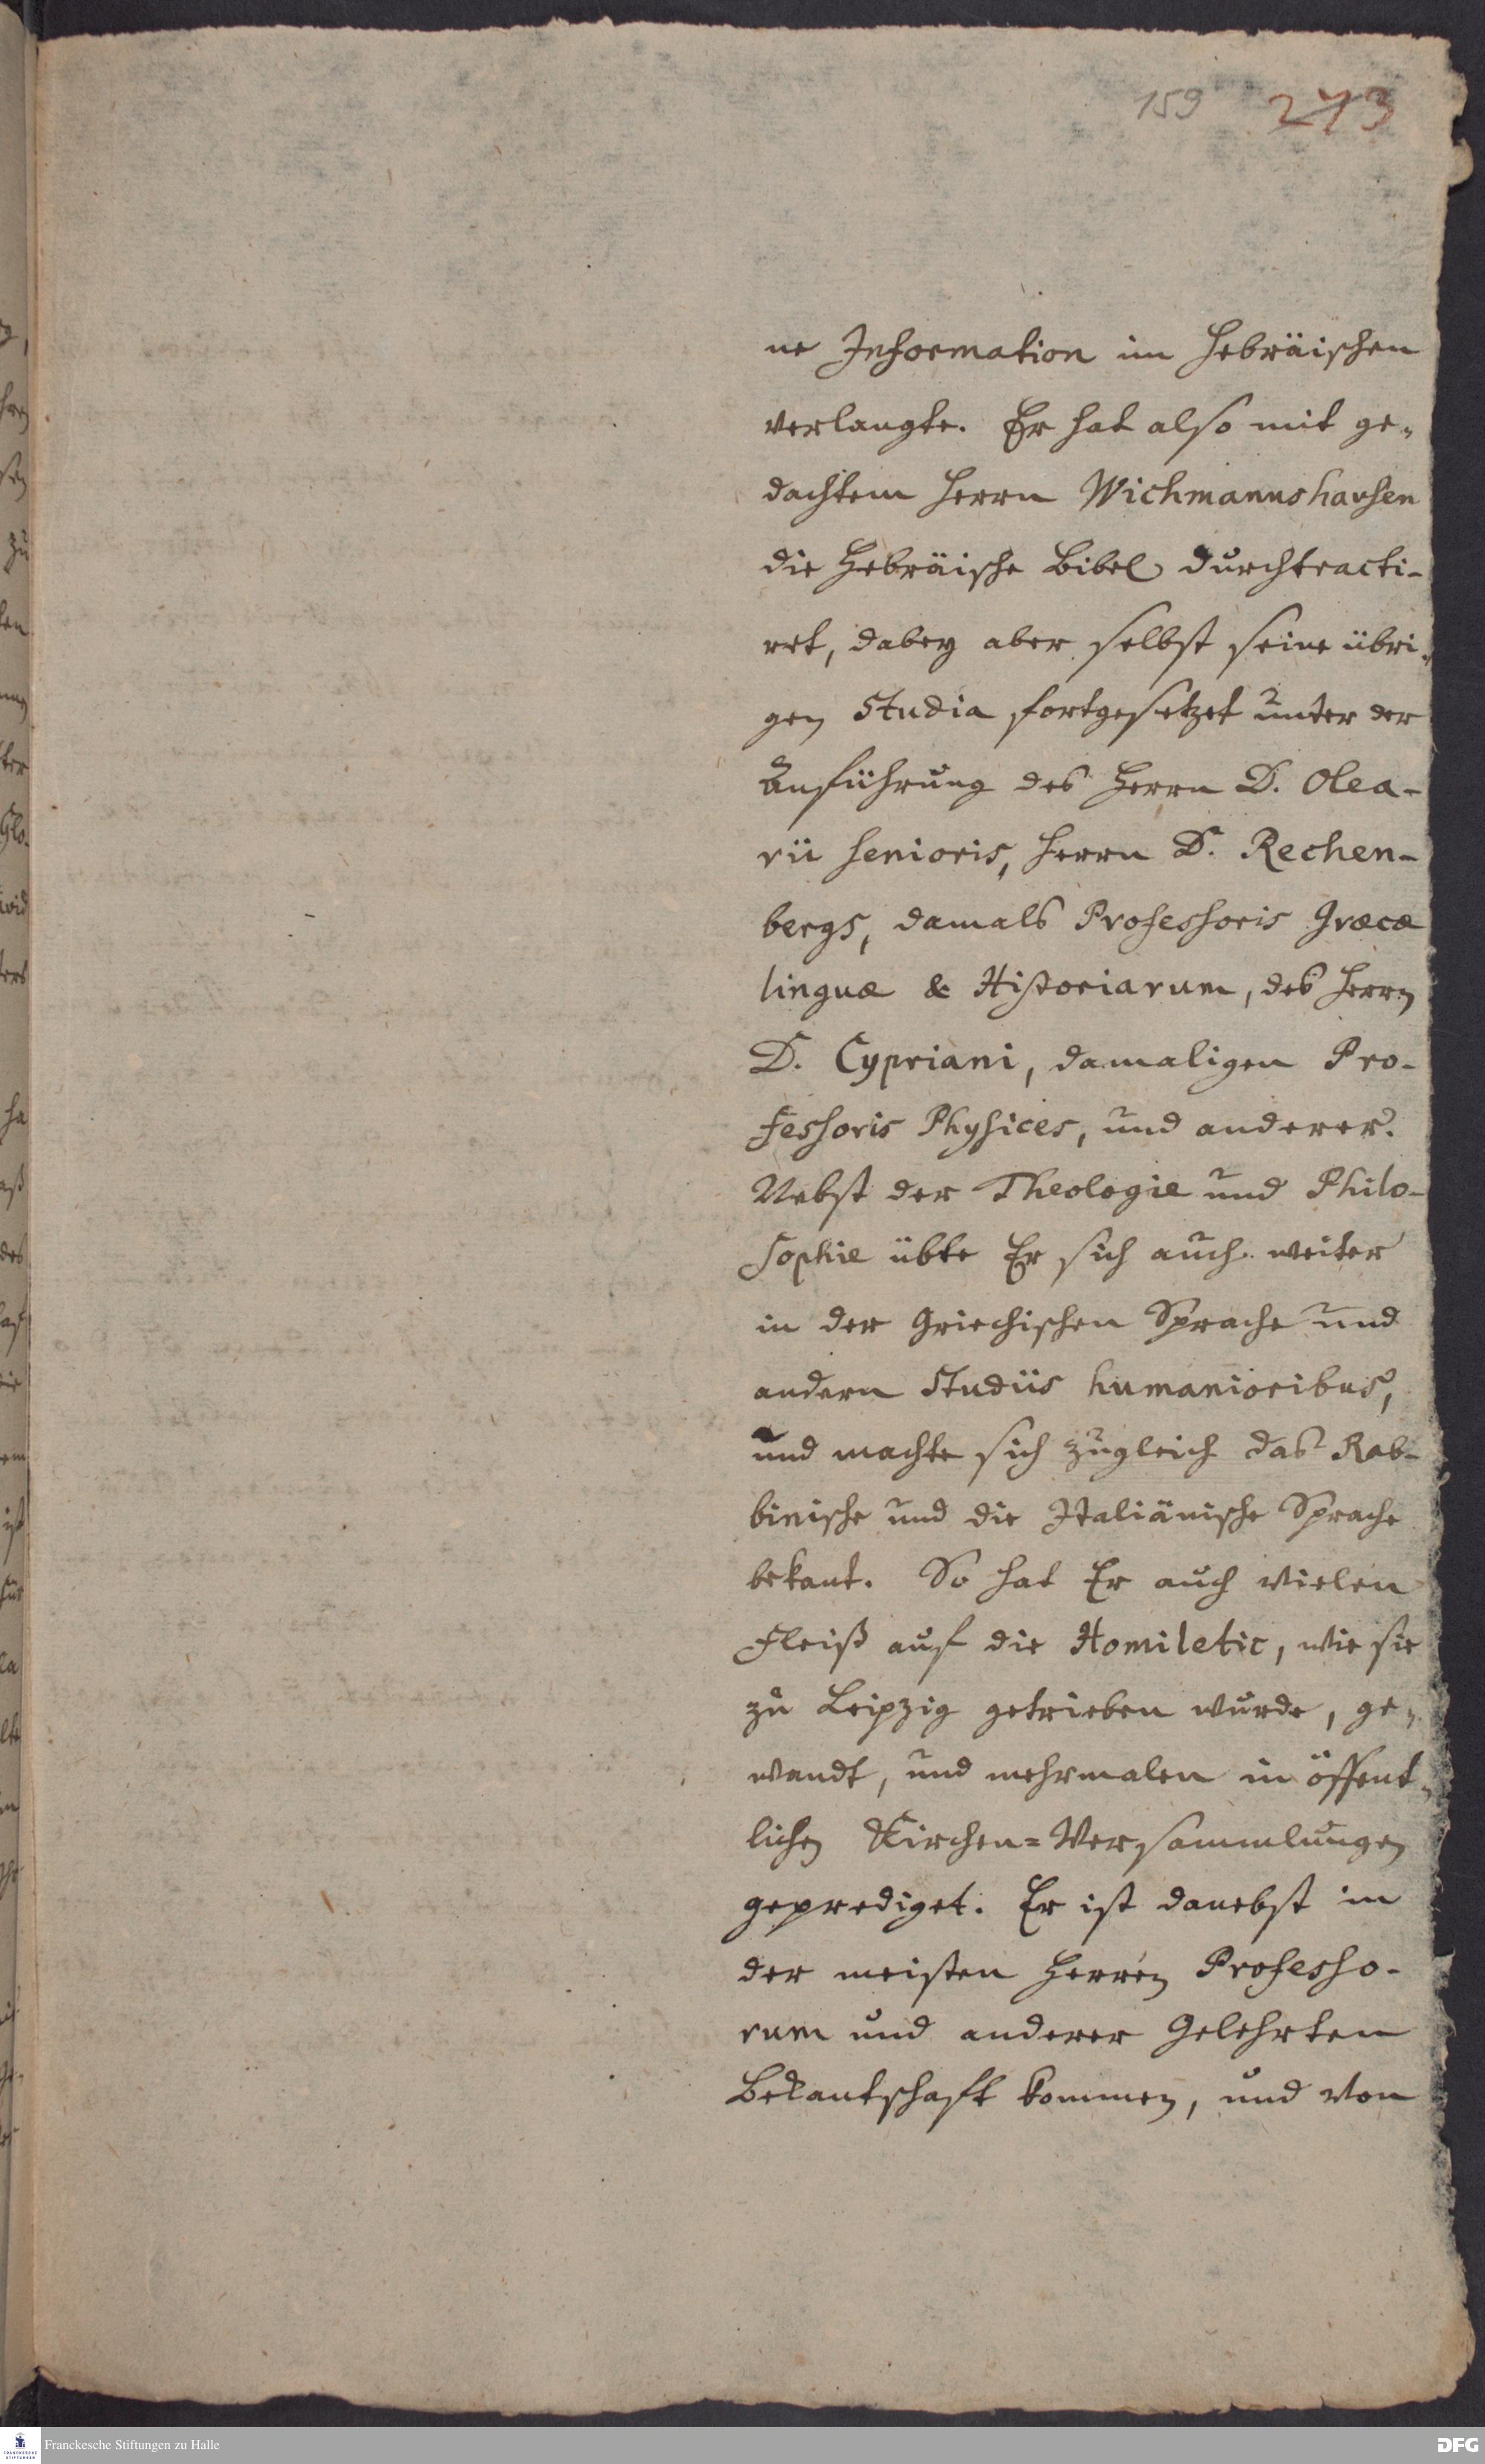 159 273
ne Information im Hebräischen
verlangte. Er hat also mit ge-
dachtem Herrn Wichmannshausen
die Hebräische Bibel durchtracti-
ret, dabey aber selbst seine übri-
gen Studia fortgesetzet unter der
Anführung des Herrn D. Olea-
rii senioris, Herrn D. Rechen-
bergs, damals Professoris Græcæ
linguæ & Historiarum, des Herrn
D. Cypriani, damaligen Pro-
fessoris Physices, und anderer.
Nebst der Theologie und Philo-
sophie übte Er sich auch weiter
in der Griechischen Sprache und
andern Studiis humanioribus,
und machte sich zugleich das Rab-
binische und die Italiänische Sprache
bekant. So hat Er auch vielen
Fleiß auf die Homiletic, wie sie
zu Leipzig getrieben wurde, ge-
wandt, und mehrmalen in öffent-
lichen Kirchen=Versammlungen
geprediget. Er ist danebst in
der meisten Herren Professo-
rum und anderer Gelehrten
Bekantschaft kommen, und von
Franckesche Stiftungen zu Halle
DFG